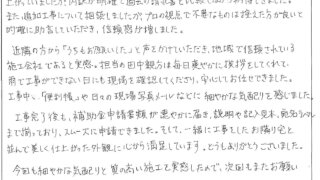 また追加工事について相談しましたが、プロの視点で不要なものは控えた方が良いと
的確に助言していただき、信頼感が増しました。
近隣の方から「うちもお願いしたい」と声をかけていただき、地域で信頼されている
施工会社であると実感。担当の田中親方は毎日爽やかに挨拶をしてくれて、
雨で工事ができない日にも現場を確認してくださり、安心してお任せできました。
工事中、「便利帳」や日々の現場写真メールなどに細やかな気配りを感じました。
工事完了後も、補助金申請書類が速やかに届き、説明や記入見本、宛名シール
まで揃っており、スムーズに申請できました。そして、一緒に工事をしたお隣り宅と
並んで美しく仕上がった外観に心から満足しています。どうもありがとうございました。
今回も細やかな気配りと質の高い施工を実感したので、次回もまたお願い